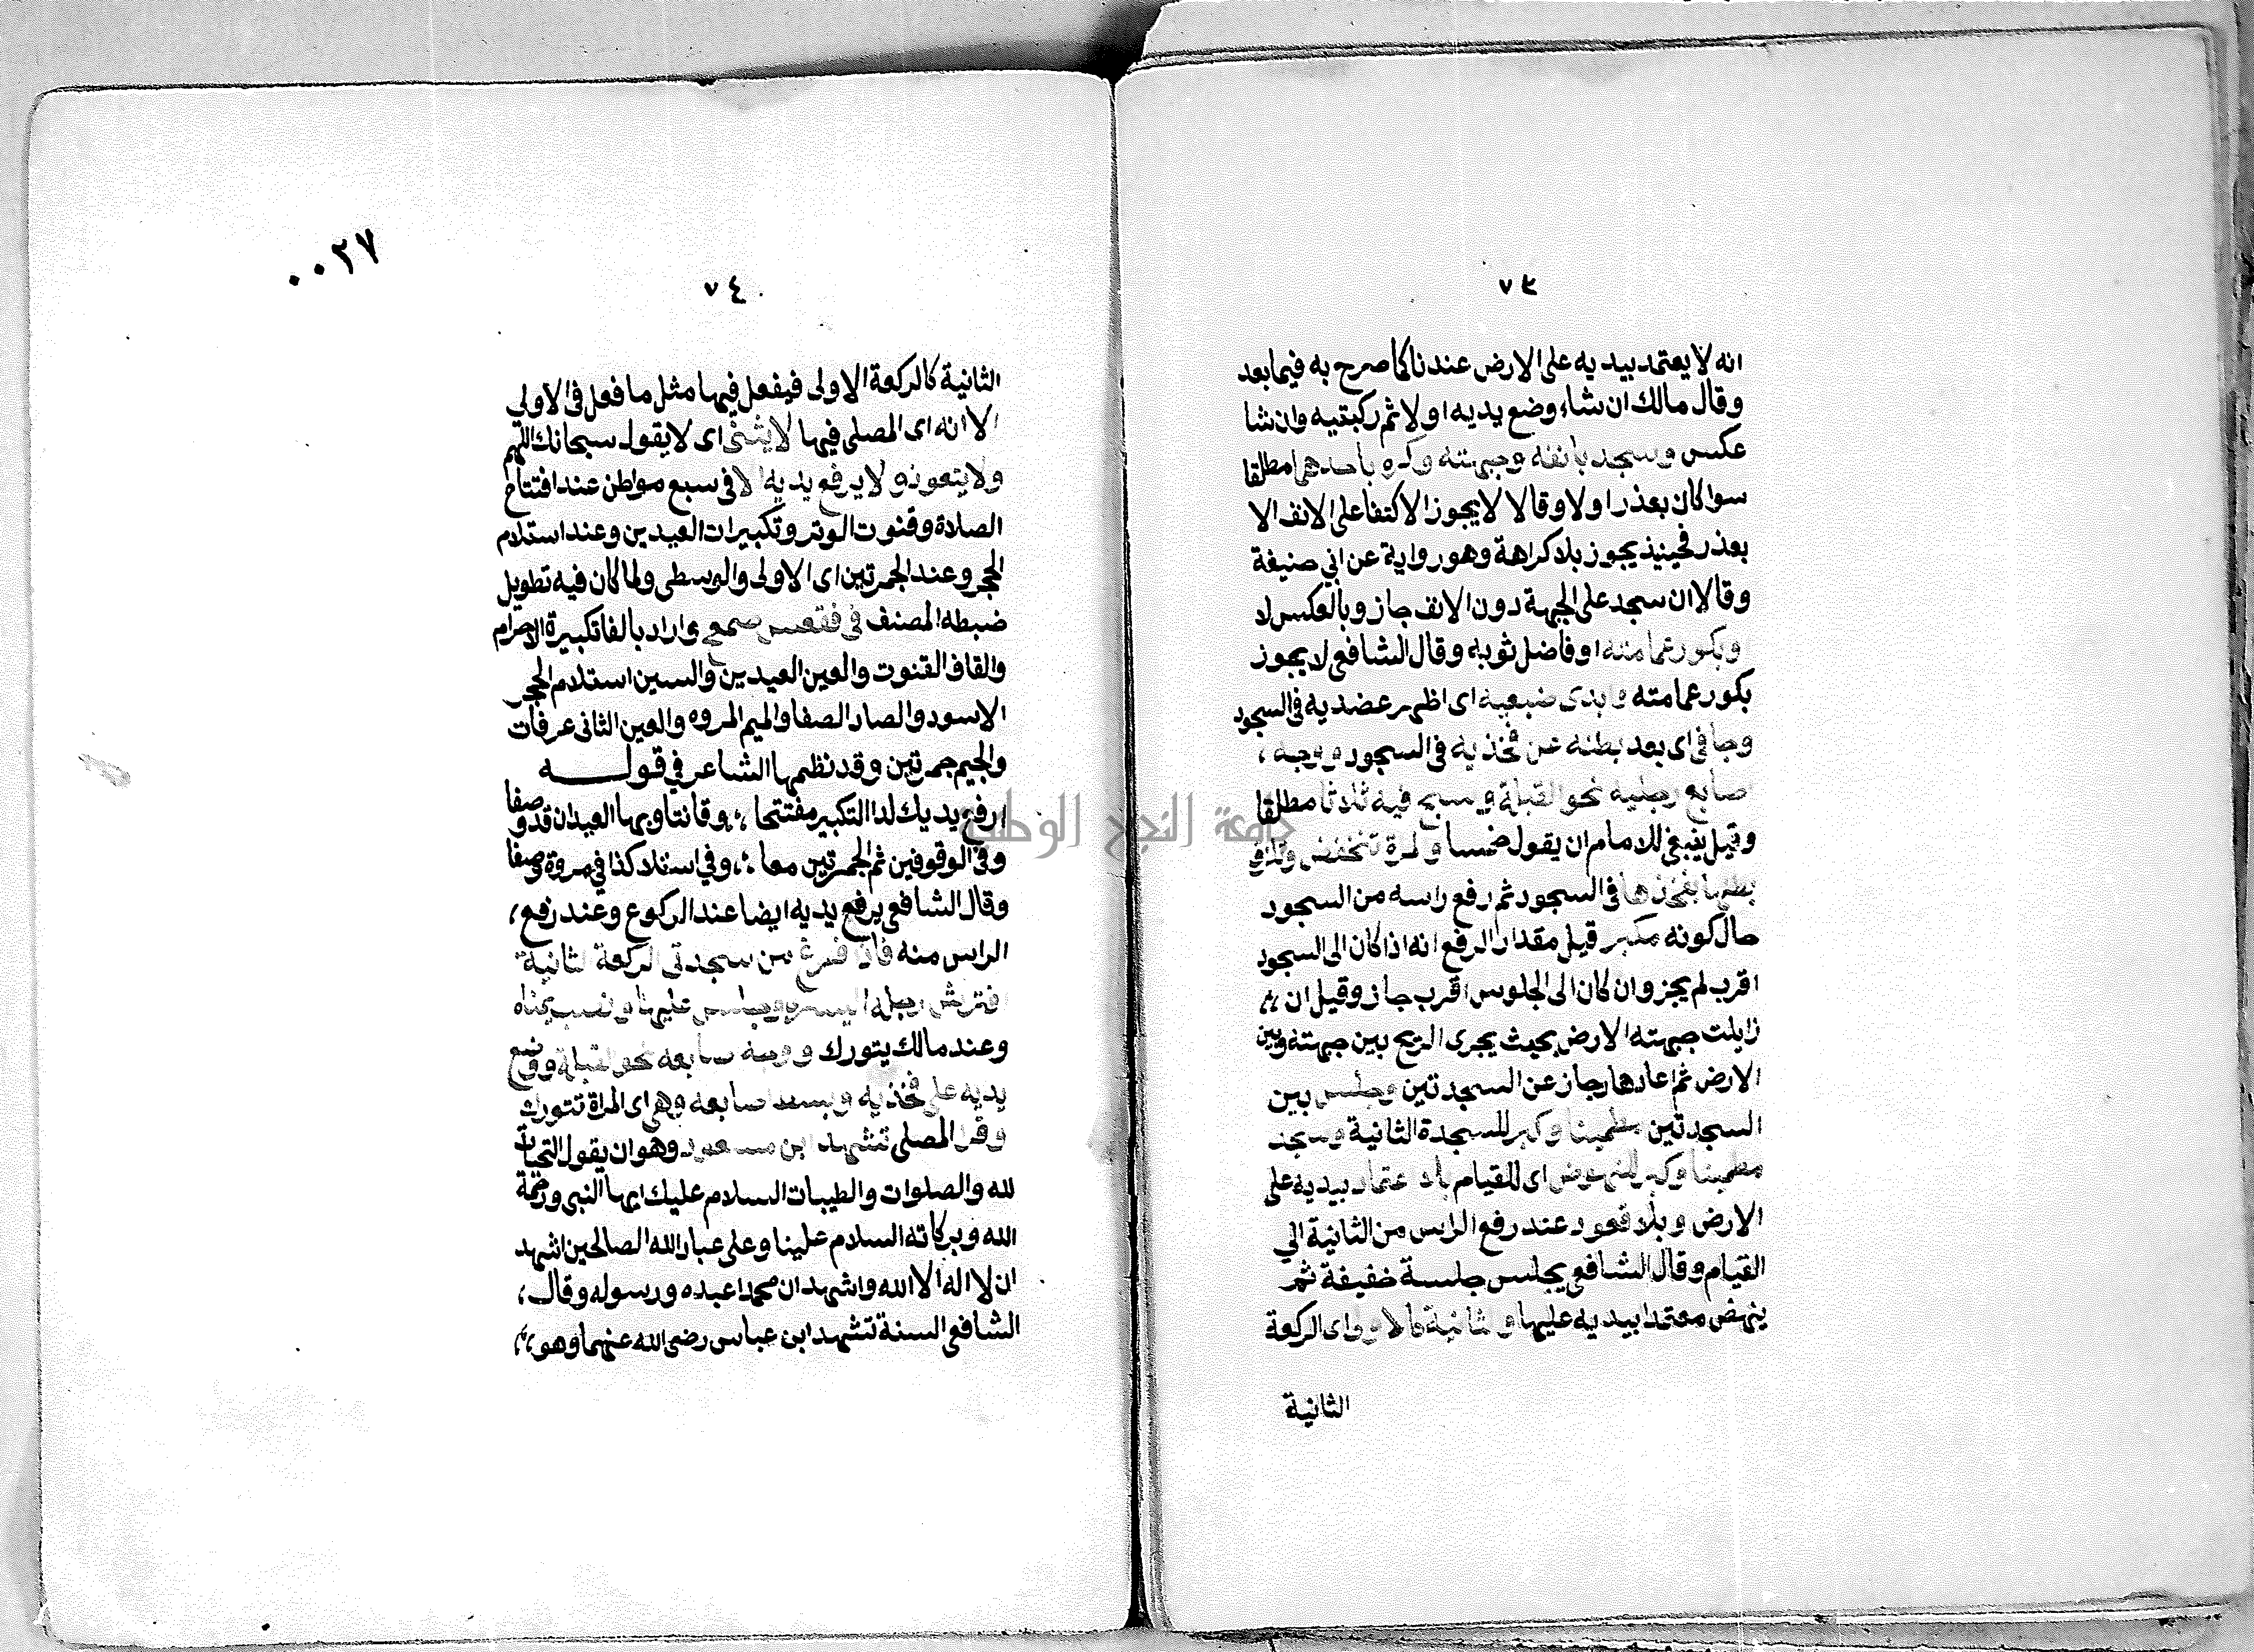 ٧٣
انه لا يعتمد بيديه على الارض عندنا كما صرح به فيما بعد
وقال مالك ان شاء وضع يديه اولا ثم ركبتيه وان شا
عكس وسجد بانفه وجبهته وكره باحدهما مطلقا
سوا كان بعذر اولا وقالا لا يجوز الاكتفا على الانف الا
بعذر فحينيذ يجوز بلا كراهة وهو رواية عن ابي حنيفة
وقالا ان سجد على الجبهة دون الانف جاز وبالعكس لا
وبكور عمامته او فاضل ثوبه وقال الشافعي لا يجوز
بكور عمامته وابدى ضبعيه اى اظهر عضديه في السجود
وجافى اى بعد بطنه عن فخذيه في السجود ووجه
اصابع رجليه نحو القبلة ويسبح فيه ثلاثا مطلقا
وقيل ينبغي للامام ان يقول خمسا والمرة تنخفض وتلزق
بطنها بفخذها في السجود ثم رفع راسه من السجود
حال كونه مكبر قيل مقدار الرفع انه اذا كان الى السجود
اقرب لم يجز وان كان الى الجلوس اقرب جاز وقيل ان
زايلت جبهته الارض بحيث يجرى الريح بين جبهته وبين
الارض ثم اعادها جاز عن السجدتين وجلس بين
السجدتين مطمينا وكبر للسجدة الثانية وسجد
مطمينا وكبر للنهوض اى للقيام بلا عتماد بيديه على
الارض وبلا قعود عند رفع الراس من الثانية الي
القيام وقال الشافعي يجلس جلسة خفيفة ثم
ينهض معتمدا بيديه عليها والثانية كالاولى اى الركعة
الثانية
٠٠٣٧
٧٤
الثانية كالركعة الاولى فيفعل فيها مثل ما فعل في الاولي
الا انه اى المصلى فيها لا يثنى اى لا يقول سبحانك اللهم
ولا يتعوذ ولا يرفع يديه الا في سبع مواطن عند افتتاح
الصلاة وقنوت الوتر وتكبيرات العيدين وعند استلام
الحجر وعند الجمرتين اى الاولى والوسطى ولما كان فيه تطويل
ضبطه المصنف في فقعس صمعج واراد بالفا تكبيرة الاحرام
والقاف القنوت والعين العيدين والسين استلام الحجر
الاسود والصاد الصفا والميم المروه والعين الثاني عرفات
والجيم جمرتين وقد نظمها الشاعر في قوله
ارفع يديك لدا التكبير مفتتحا وقانتا وبها العيدان قد وصفا
وفي الوقوفين ثم الجمرتين معا وفي استلاد كذا في مروة وصفا
وقال الشافعي يرفع يديه ايضا عند الركوع وعند رفع
الراس منه فاذا فرغ من سجدتى الركعة الثانية
افترش رجله اليسرى وجلس عليها ونصب يمناه
وعند مالك يتورك ووجه اصابعه نحو القبلة ووضع
يديه على فخذيه وبسط اصابعه وهى اى المراة تتورك
وقرا المصلى تشهد ابن مسعود وهو ان يقول التحيات
لله والصلوات والطيبات السلام عليك ايها النبي ورحمة
الله وبركاته السلام علينا وعلى عباد الله الصالحين اشهد
ان لا اله الا الله واشهد ان محمدا عبده ورسوله وقال
الشافعي السنة تشهد ابن عباس رضى الله عنهما وهو
جامعة النجاح الوطنية